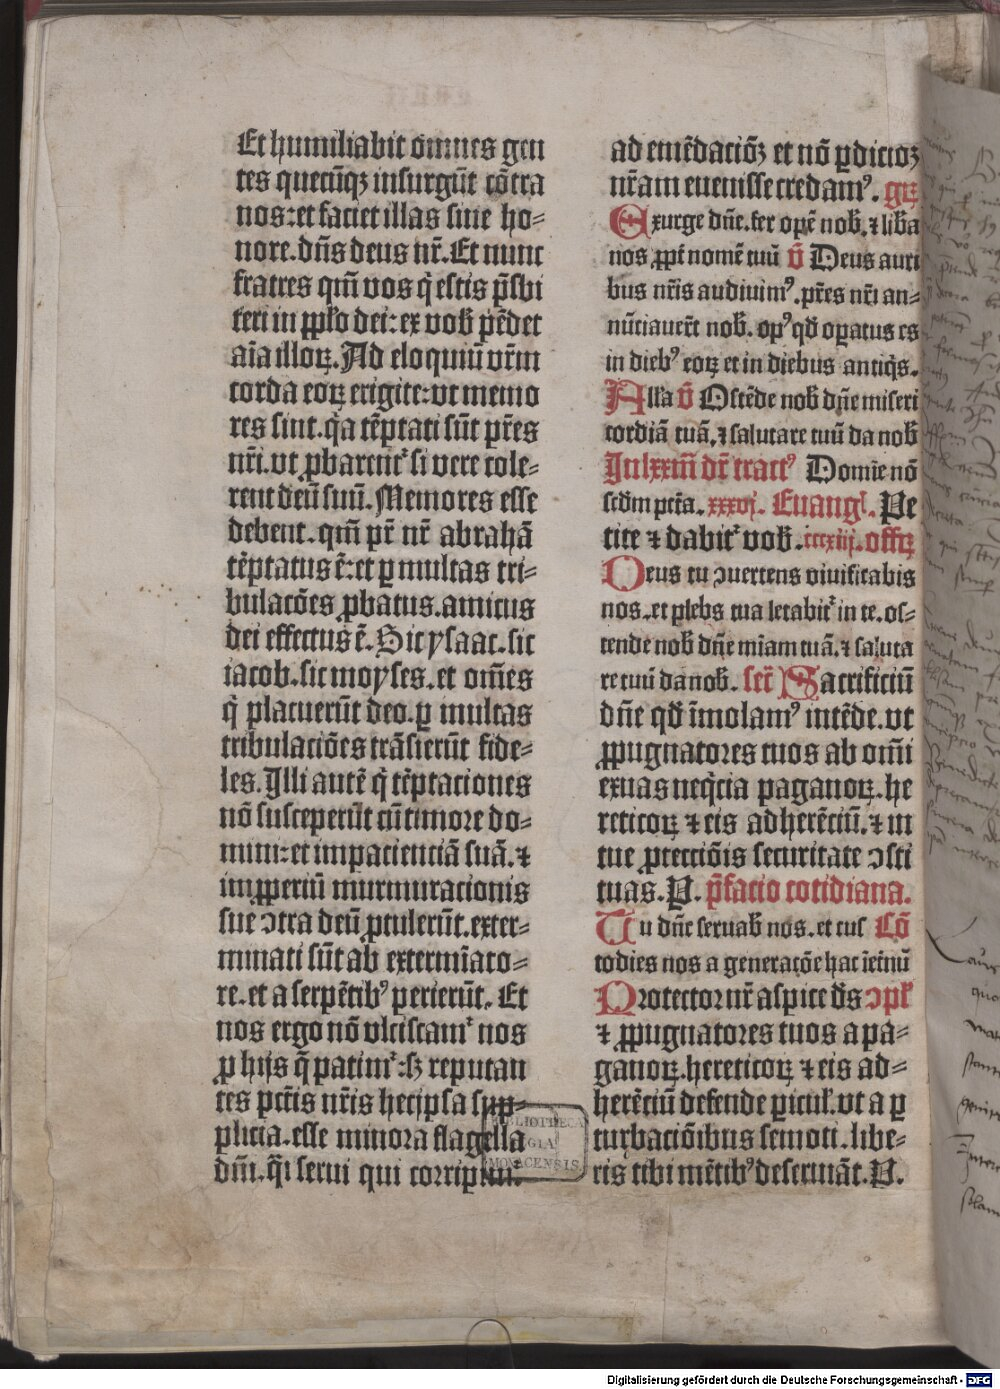 Et humiliabit om̄nes gen
tes quecūqꝫ insurgūt cōtra
nos: et faciet illas sine ho⸗
nore. dn̄s deus nr̄. Et nunc
fratres qm̄ vos q̄ estis p̄sbi
teri in ꝓpło dei: ex vob̄ pēdet
aīa illoꝝ. Ad eloquiū vr̄m
corda eoꝝ erigite: vt memo
res sint. q̇a tēptati sūt pr̄es
nr̄i. vt ꝓbarent᷑ si vere cole⸗
rent deū suū. Memores esse
debent. qm̄ pr̄ nr̄ abrahā
tēptatus ē: et ꝑ multas tri⸗
bulacōes ꝓbatus. amicus
dei effectus ē. Sic ysaac. sic
iacob. sic moyses. et om̄es
q̇ placuerūt deo. ꝑ multas
tribulaciōes trāsierūt fide⸗
les. Illi autē q̇ tēptaciones
nō susceperūt cū timore do⸗
mini: et impacienciā suā. ⁊
imꝓperiū murmuracionis
sue ꝯtra deū ꝓtulerūt. exter⸗
minati sūt ab extermīato⸗
re. et a serpētibꝰ perierūt. Et
nos ergo nō vlciscam᷑ nos
ꝓ hijs q̄ patim᷑: sꝫ reputan
tes pctīs nr̄is hec ip̄sa sup⸗
plicia. esse minora flagella
dn̄i. q̄i serui qui corripim᷑.
ad emēdaciōꝫ et nō ꝑdicioꝫ
nr̄am euenisse credamꝰ. grꝝ
Exurge dn̄e. fer opē nob̄. ⁊ liƀa
nos ꝓpt̄ nomē tuū v̄ Deus auri
bus nr̄is audiuimꝰ. pr̄es nr̄i an⸗
nūciauer̄t nob̄. opꝰ qd̄ oꝑatus es
in diebꝰ eoꝝ et in diebus antiq̇s.
Alľa v̄ Ostēde nob̄ dn̄e miseri
cordiā tuā. ⁊ salutare tuū da nob̄
In lxxin̄ dr̄ tractꝰ Domīe nō
scdm pctā. xxxvj. Euangl. Pe
tite ⁊ dabit᷑ vob̄. icxiij. offꝝ
Deus tu ꝯuertens viuificabis
nos. et plebs tua letabit᷑ in te. os⸗
tende nob̄ dn̄e mīam tuā. ⁊ saluta
re tuū da nob̄. secr̄ Sacrificiū
dn̄e qd̄ īmolamꝰ intēde. vt
ꝓpugnatores tuos ab om̄i
exuas neq̇cia paganoꝝ. he
reticoꝝ ⁊ eis adherēciū. ⁊ in
tue ꝓtecciōis securitate ꝯsti
tuas. P. p̄facio cotidiana.
Tu dn̄e seruab̄ nos. et cus Cō
todies nos a generacōe hac ī et̄nū
Protector nr̄ aspice d̄s ꝯpł
⁊ ꝓpugnatores tuos a pa⸗
ganoꝝ. hereticoꝝ ⁊ eis ad⸗
herēciū defende ꝑicuł. vt a ꝑ
turbaciōibus semoti. libe⸗
ris tibi mētibꝰ deseruiāt. P.
BIBLIOTHECA
REGIA
MONACENSIS
Digitalisierung gefördert durch die Deutsche Forschungsgemeinschaft - DFG